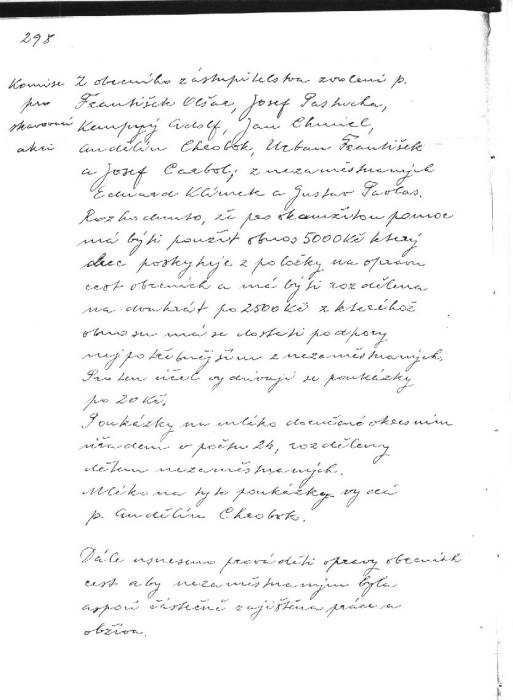 298
Komise Z obecního zastupitelstva zvoleni p.
pro František Olšar, Josef Pastucha,
Adolf, Jan Chmiel,
akci Andělín Chrobok, Urban František
a Josef z nezaměstnaných
Eduard Klimek a Gustav
Rozhodnuto, že pro okamžitou pomoc
má býti použit obnos 5000 Kč který
obec poskytuje z položky na opravu
cest obecních a má býti rozdělena
na dvakrát po 2500 Kč z kteréhož
obnosu má se dostati podpory
nejpotřebnějším z nezaměstnaných.
Pro ten účel vydávají se poukázky
po 20 Kč.
Poukázky na mléko doručané okresním
úřadem v počtu 24, rozděleny
dětem nezaměstnaných.
Mléko na tyto poukázky vydá
p. Andělín Chrobok.
Dále usneseno prováděti opravy obecních
cest aby nezaměstnaným byla
aspoň částečně zajištěna práce a
obživa.